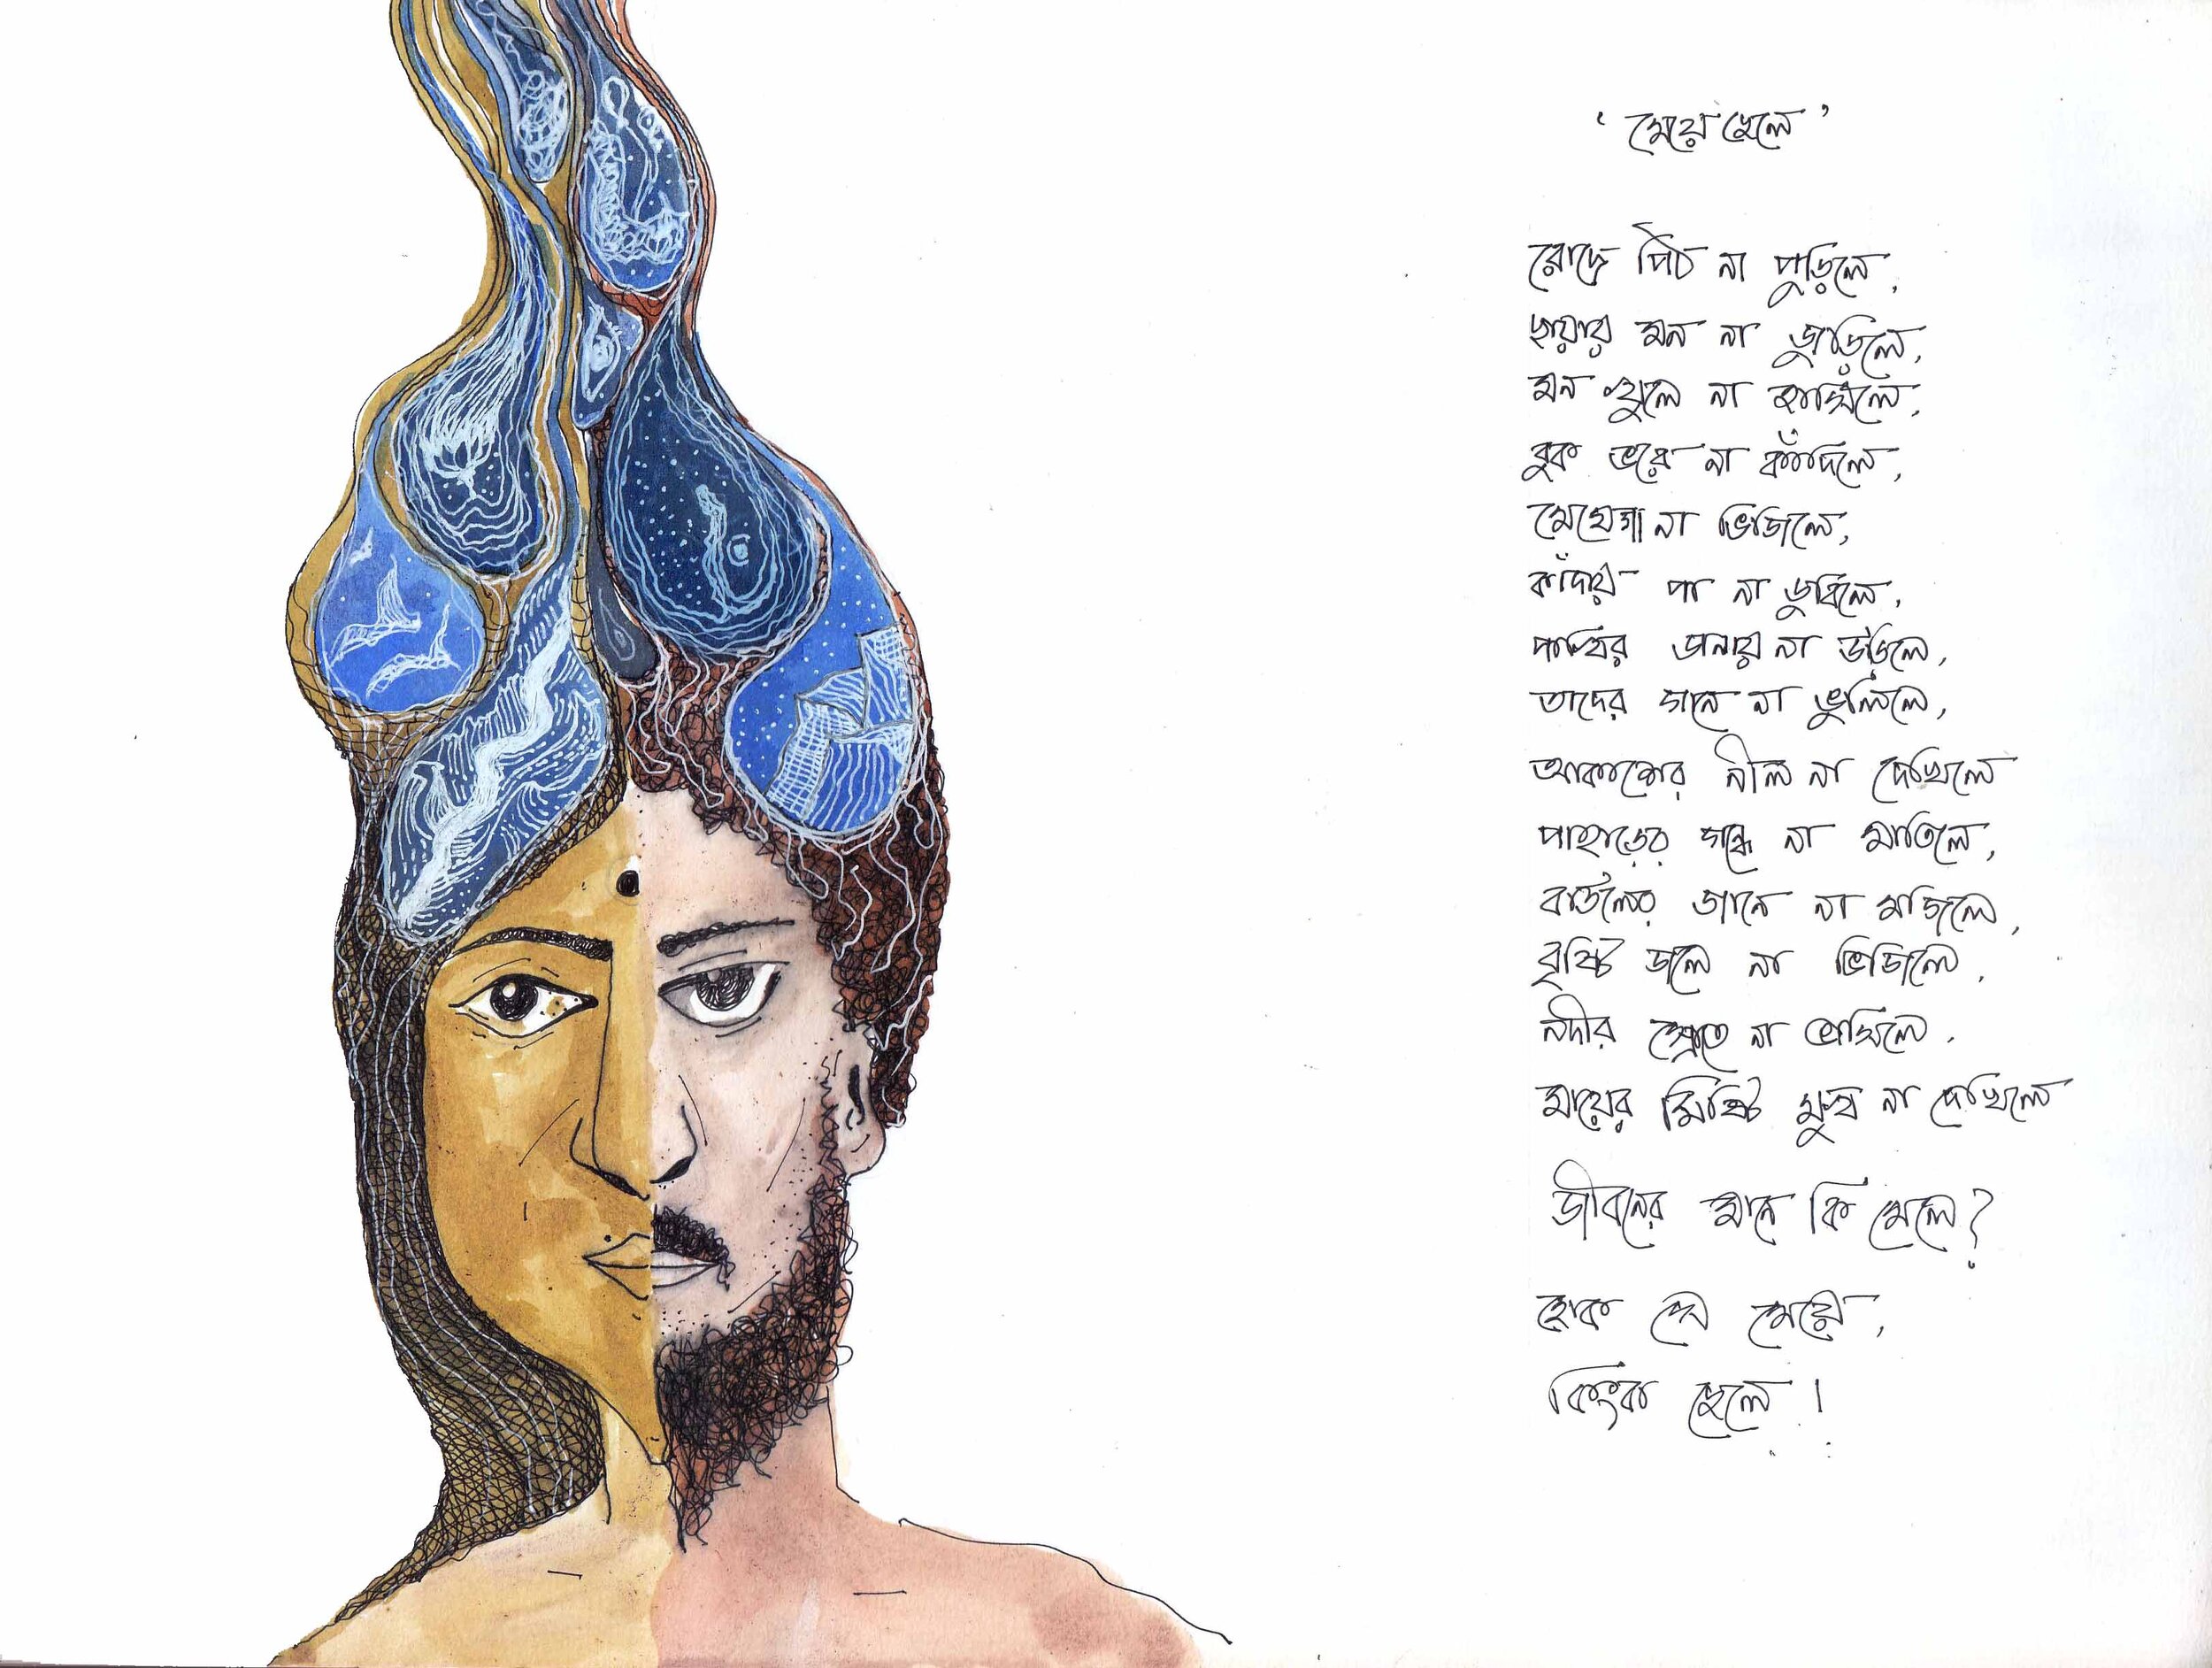 ‘মেয়েছেলে’
রোদ্রে পিঠ না পুড়িলে,
ছায়ায় মন না জুড়িলে,
মন খুলে না হাসিলে,
বুক ভরে না কাঁদিলে,
মেঘে গা না ভিজিলে,
কাঁদায় পা না ডুবিলে,
পাখির ডানায় না উড়িলে,
তাদের গানে না ভুলিলে,
আকাশের নীল না দেখিলে
পাহাড়ের গন্ধে না মাতিলে,
বাউলের গানে না মজিলে,
বৃষ্টি জলে না ভিজিলে,
নদীর স্রোতে না ভাসিলে,
মায়ের মিষ্টি মুখ না দেখিলে
জীবনের মানে কি মেলে?
হোক সে মেয়ে,
কিংবা ছেলে!